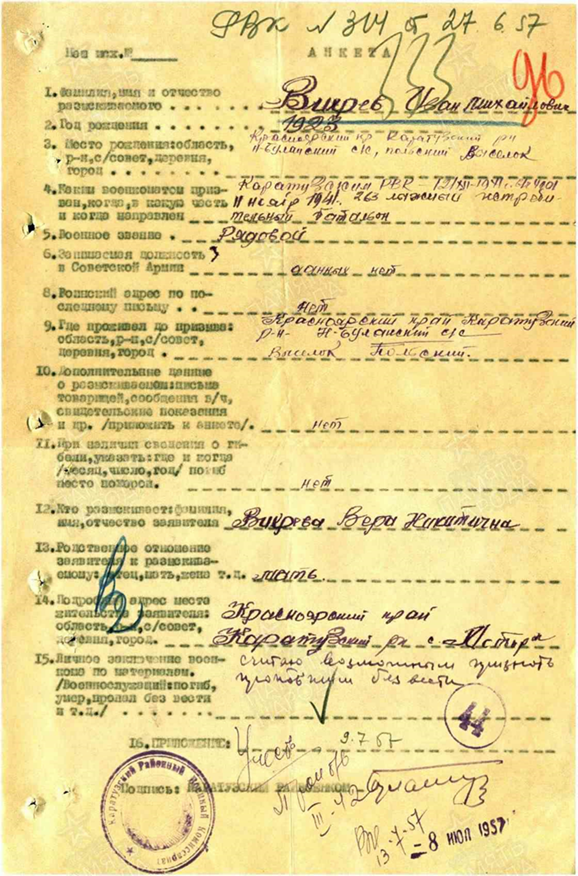 РВК № 314 от 27 6. 57
Наш исх.№
АНКЕТА
96
1. Фамилия, имя и отчество
разыскиваемого Вихрев Иван Михайлович
2. Год рождения 1923
3. Место рождения: область, Красноярский кр Каратузский рн
р-н, с/совет, деревня, Н-Буланский с/с, польский Выселок
город
4. Каким военкоматом приз- Каратузским РВК
ван, когда, в какую часть 11 ноябр 1941. 263 лыжный истреби-
и когда направлен тельный батальон
5. Военное звание Рядовой
6. Занимаемая должность
в Советской Армии данных нет
8. Воинский адрес по по-
следнему письму Нет
9. Где проживал до призыва: Красноярский край Каратузский
область, р-н, с/совет, р-н Н-Буланский с/с
деревня, город Выселок Польский.
10. Дополнительные данные
о разыскиваемом: письма
товарищей, сообщения в/ч,
свидетельские показания
и пр. /приложить к анкете/. нет
11. При наличии сведения о ги-
бели, указать: где и когда
/месяц, число, год/ погиб
место похорон. нет
12. Кто разыскивает: фамилия,
имя, отчество заявителя Вихрева Вера Никитична
13. Родственное отношение
заявителя к разыскива-
емому: отец, мать, жена т.д. мать.
14. Подробный адрес места
жительства заявителя: Красноярский край
область, р-н, с/совет,
деревня, город. Каратузский рн с
15. Личное заключение воен- считаю возможным признать
кома по материалам. пропавшим без вести
/Военнослужащий: погиб,
умер, пропал без вести
и т.д./
44
16. ПРИЛОЖЕНИЕ: 9.7.57
Подпись: КАРАТУЗСКИЙ РАЙВОЕНКОМ
Каратузский Районный Военный Комиссариат
III-42
13-7-57
-8 ИЮЛ 1957